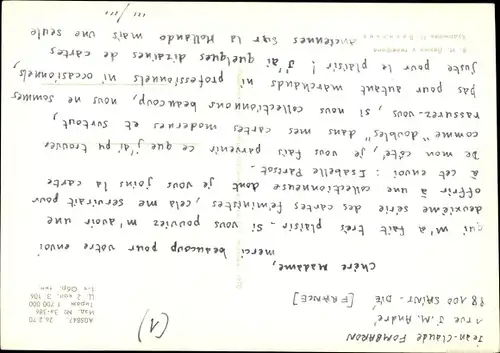 Jean-Claude FOMBARON
1 rue J.M. André
88100 SAINT-DIÉ [FRANCE]
(1)
Chère Madame,
merci beaucoup pour votre envoi
qui m'a fait très plaisir - Si vous pouviez m'avoir une
deuxième série des cartes féministes, cela me servirait pour
offrir à une collectionneuse dont je vous joins la carte
à cet envoi : Isabelle Parizot.
De mon côté, je vous fais parvenir ce que j'ai pu trouver
comme "doubles" dans mes cartes modernes et surtout,
rassurez-vous, si nous collectionnons beaucoup, nous ne sommes
pas pour autant marchands ni professionnels ni occasionnels,
juste pour le plaisir ! J'ai quelques dizaines de cartes
anciennes sur la Hollande mais une seule
.../...
А03847. 26.2.70
Изд. № 3а-386
Тираж 1 700 000
Ц. 2 коп. З. 106
1-я Обр. тип.